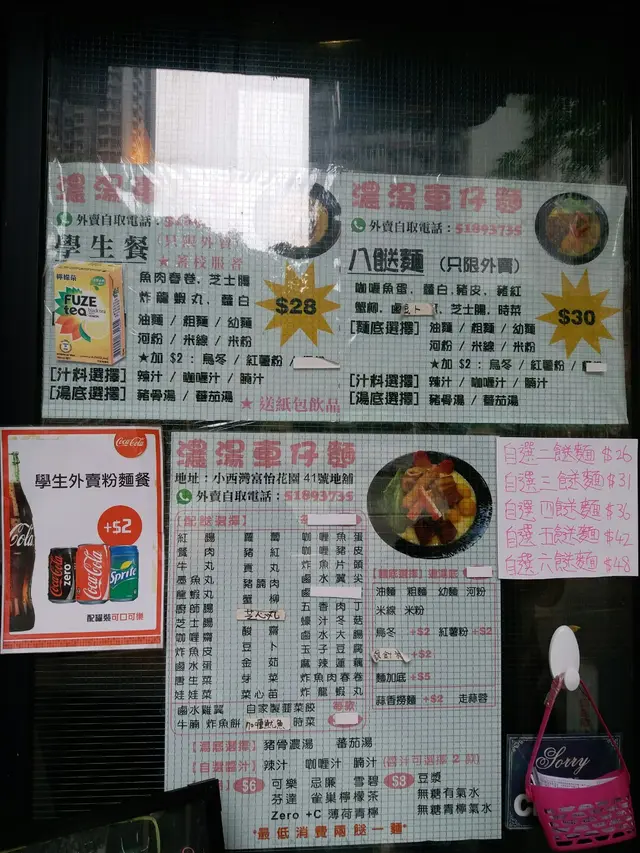 濃湯車
外賣自取電話：
學生餐
★著校服者
魚肉春卷、芝士腸
炸龍蝦丸、蘿白
$28
油麵 / 粗麵 / 幼麵
河粉 / 米線 / 米粉
★加 $2：烏冬 / 紅薯粉 /
[汁料選擇] 辣汁 / 咖喱汁 / 腩汁
[湯底選擇] 豬骨湯 / 蕃茄湯
★ 送紙包飲品
檸檬茶
FUZE
tea
濃湯車仔麵
外賣自取電話：51893735
八餸麵 (只限外賣)
咖喱魚蛋、蘿白、豬皮、豬紅
蟹柳、芝士腸、時菜
$30
[麵底選擇] 油麵 / 粗麵 / 幼麵
河粉 / 米線 / 米粉
★加 $2：烏冬 / 紅薯粉 /
[汁料選擇] 辣汁 / 咖喱汁 / 腩汁
[湯底選擇] 豬骨湯 / 蕃茄湯
Coca-Cola
學生外賣粉麵餐
+$2
Coca-Cola
zero
Coca-Cola
Sprite
配罐裝可口可樂
濃湯車仔麵
地址：小西灣富怡花園 41號地舖
外賣自取電話：51893735
紅腸 蘿蔔 咖喱魚蛋
豬紅 咖喱豬皮
牛丸 貢丸 炸魚片頭
墨魚丸 豬腩肉
龍蝦丸 蟹柳
廚師腸 芝心丸 五香肉丁
芝士腸 蠔汁冬菇
咖喱齋 酸齋 鹵水大腸
炸魚皮 豆卜 玉子豆腐
鹵水蛋 金菇 麻辣蓮藕
唐生菜 芽菜 炸魚肉春卷
娃娃菜 菜心苗 炸龍蝦丸
鹵水雞翼 自家製韮菜餃
牛腩 炸魚餅 時菜
油麵 粗麵 幼麵 河粉
米線 米粉
烏冬 +$2 紅薯粉 +$2
+$2
麵加底 +$5
蒜香撈麵 +$2 走蒜蓉
[湯底選擇] 豬骨濃湯 蕃茄湯
[自選醬汁] 辣汁 咖喱汁 腩汁 (醬汁可選擇 2 款)
$6 可樂 忌廉 雪碧 $8 豆漿
芬達 雀巢檸檬茶 無糖有氣水
Zero +C 薄荷青檸 無糖青檸氣水
*最低消費兩餸一麵*
自選二餸麵 $26
自選三餸麵 $31
自選四餸麵 $36
自選五餸麵 $42
自選六餸麵 $48
Sorry